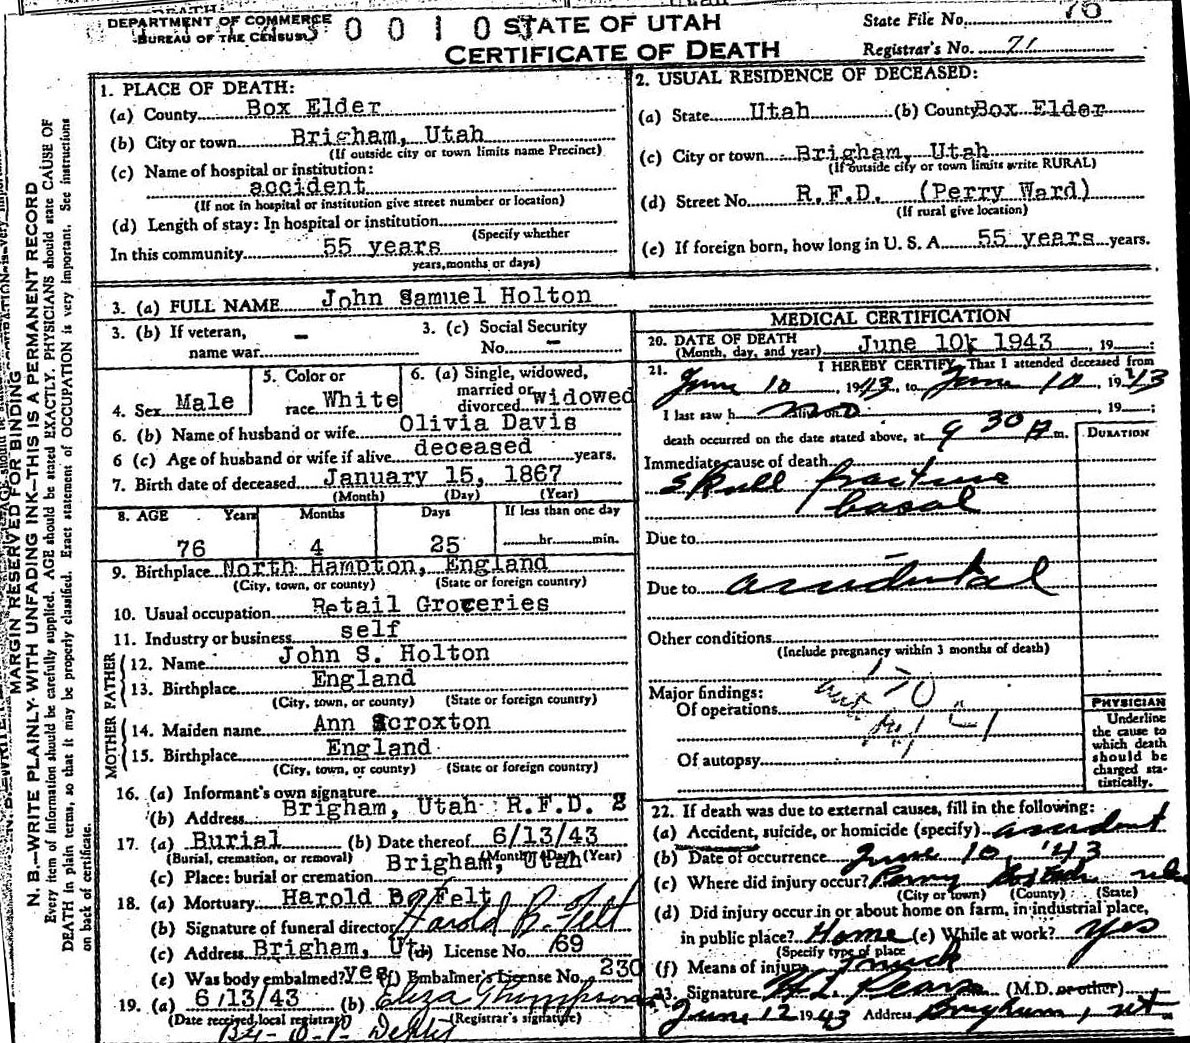 DEPARTMENT OF COMMERCE
BUREAU OF THE CENSUS
0 0 1 0
STATE OF UTAH
CERTIFICATE OF DEATH
State File No. 76
Registrar's No. 71
MARGIN RESERVED FOR BINDING
N. B.—WRITE PLAINLY WITH UNFADING INK—THIS IS A PERMANENT RECORD
Every item of information should be carefully supplied. AGE should be stated EXACTLY. PHYSICIANS should state CAUSE OF
DEATH in plain terms, so that it may be properly classified. Exact statement of OCCUPATION is very important. See instructions
on back of certificate.
1. PLACE OF DEATH:
(a) County Box Elder
(b) City or town Brigham, Utah
(If outside city or town limits name Precinct)
(c) Name of hospital or institution:
accident
(If not in hospital or institution give street number or location)
(d) Length of stay: In hospital or institution
(Specify whether
In this community 55 years
years, months or days)
2. USUAL RESIDENCE OF DECEASED:
(a) State Utah (b) County Box Elder
(c) City or town Brigham, Utah
(If outside city or town limits write RURAL)
(d) Street No. R.F.D. (Perry Ward)
(If rural give location)
(e) If foreign born, how long in U. S. A. 55 years years.
3. (a) FULL NAME John Samuel Holton
3. (b) If veteran, name war -
3. (c) Social Security No. -
4. Sex Male
5. Color or race White
6. (a) Single, widowed, married or divorced widowed
6. (b) Name of husband or wife Olivia Davis
6 (c) Age of husband or wife if alive deceased years.
7. Birth date of deceased January 15, 1867
(Month) (Day) (Year)
8. AGE Years Months Days If less than one day
76 4 25 hr. min.
9. Birthplace North Hampton, England
(City, town, or county) (State or foreign country)
10. Usual occupation Retail Groceries
11. Industry or business self
FATHER
12. Name John S. Holton
13. Birthplace England
(City, town, or county) (State or foreign country)
MOTHER
14. Maiden name Ann Scroxton
15. Birthplace England
(City, town, or county) (State or foreign country)
16. (a) Informant's own signature
(b) Address Brigham, Utah R.F.D. 2
17. (a) Burial (b) Date thereof 6/13/43
(Burial, cremation, or removal) (Month) (Day) (Year)
(c) Place: burial or cremation Brigham, Utah
18. (a) Mortuary Harold B. Felt
(b) Signature of funeral director Harold B. Felt
(c) Address Brigham, Ut (d) License No. 169
(e) Was body embalmed? yes (f) Embalmer's License No. 230
19. (a) 6/13/43 (b) Eliza Thompson
(Date received local registrar) (Registrar's signature)
MEDICAL CERTIFICATION
20. DATE OF DEATH
(Month, day, and year) June 10, 1943, 19
21. I HEREBY CERTIFY, That I attended deceased from
June 10, 1943, to June 10, 1943
I last saw h alive on no, 19 ;
death occurred on the date stated above, at 9 30 P. m.
DURATION
Immediate cause of death
skull fracture
basal
Due to
Due to accidental
Other conditions
(Include pregnancy within 3 months of death)
Major findings:
Of operations
170
Of autopsy
PHYSICIAN
Underline
the cause to
which death
should be
charged sta-
tistically.
22. If death was due to external causes, fill in the following:
(a) Accident, suicide, or homicide (specify) accident
(b) Date of occurrence June 10, '43
(c) Where did injury occur? Perry
(City or town) (County) (State)
(d) Did injury occur in or about home on farm, in industrial place,
in public place? Home (e) While at work? yes
(Specify type of place)
(f) Means of injury truck
23. Signature (M.D. or other)
June 12 1943 Address Brigham, Ut